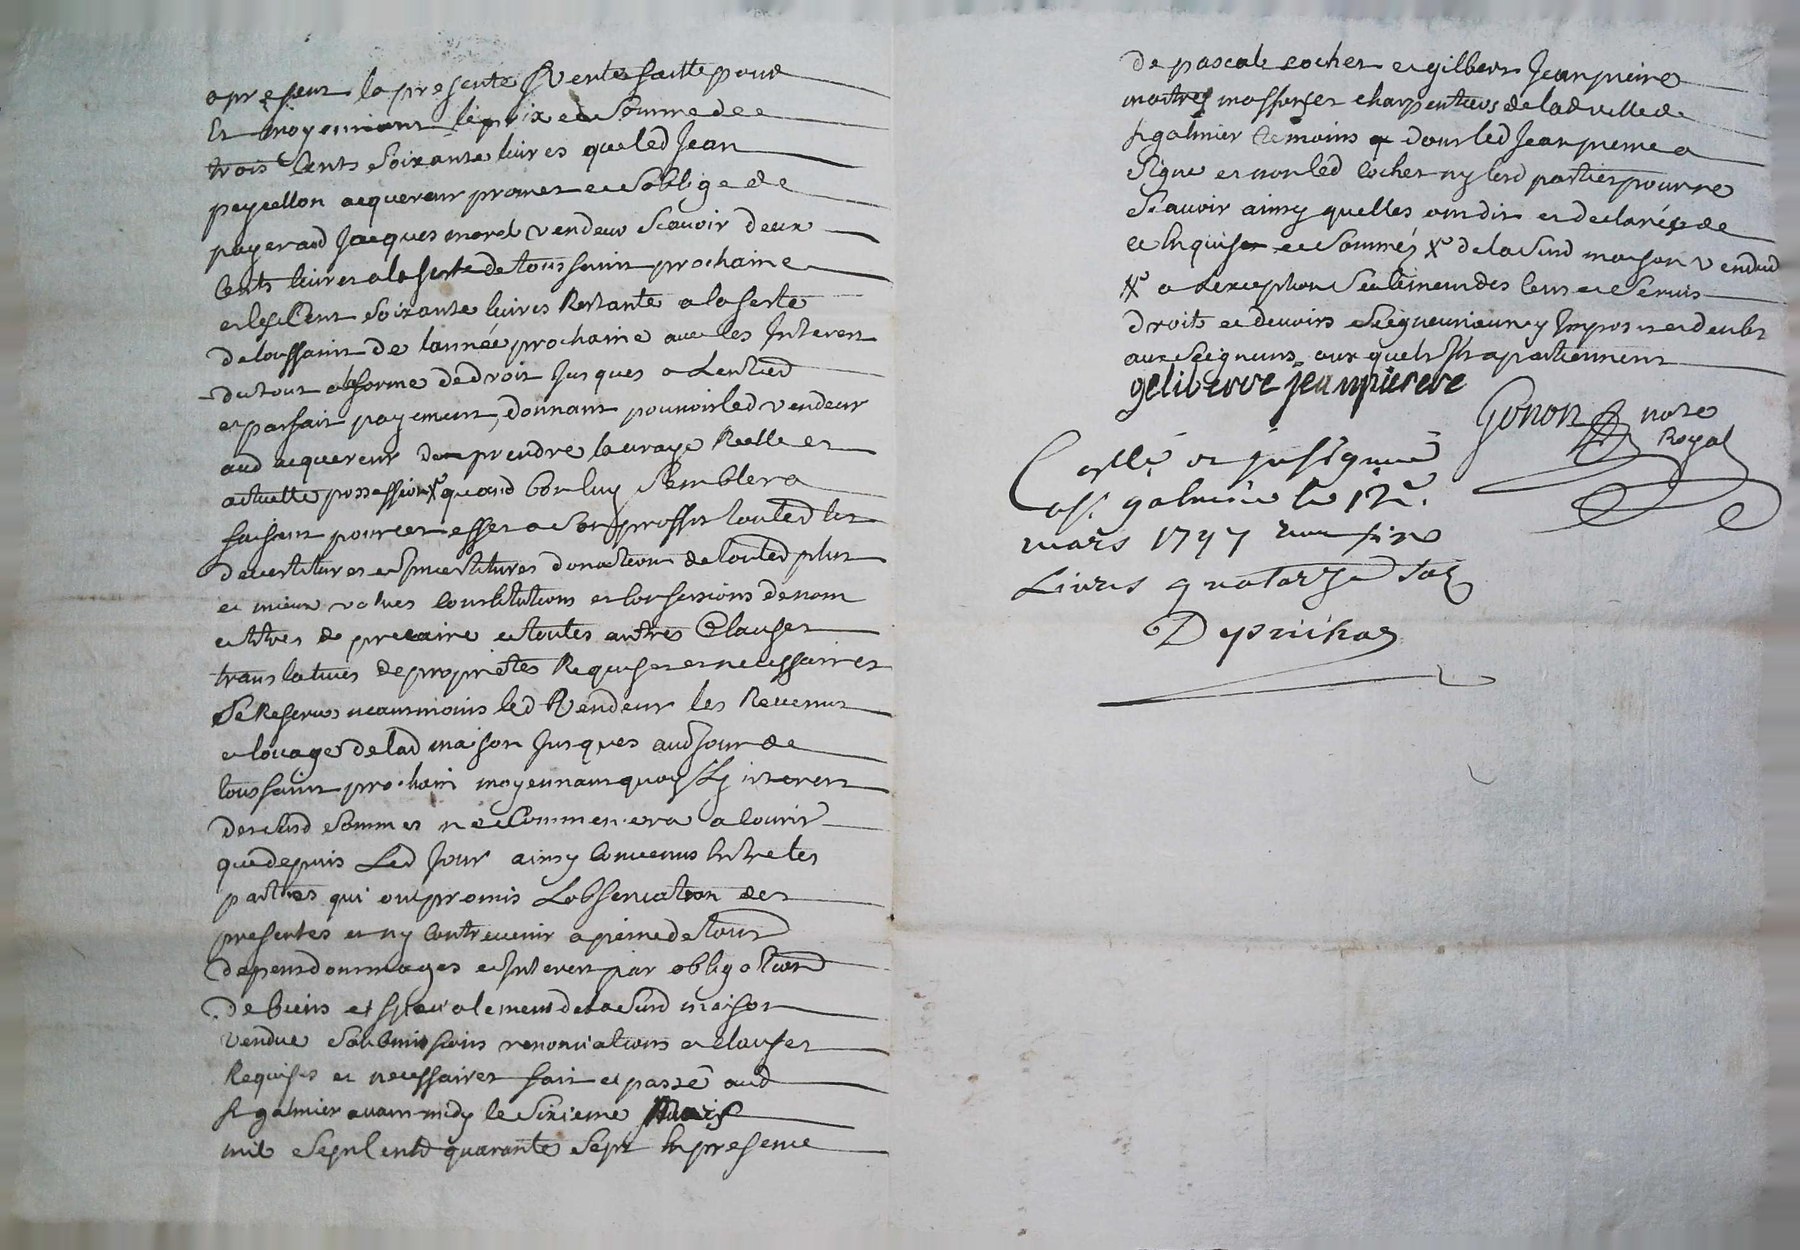 apresent la presente vente faitte pour
Et moyennant le prix et Somme de
trois Cents Soixante livres que led Jean
peycellon acquereur promet et Soblige de
payer aud Jacques morel vendeur Scavoir deux
Cents livres a la feste de toussaint prochaine
et les Cent Soixante livres Restante a la feste
de toussaint de lannée prochaine avec les Interest
du tout a forme de droit Jusques a Lentied
et parfait payement, donnant pouvoir led vendeur
aud acquereur de prendre la vraye Reelle et
actuelle possession X quand bon luy Semblera
faisant pour cet effet a Son proffit touted les
devestitures et Investitures donnation de touted plus
et mieux values Constitutions et Confessions de nom
et titres de precaire et toutes autres Clauses
translatives de proprietes Requises et necessaires
Se Reserve neanmoins led Vendeur les Revenus
et louage de lad maison Jusques aud Jour de
toussaint prochain moyennant quoy interest
des Susd Sommes ne Commencera a Courir
que depuis Led Jour ainsy Convenus Entre les
parties qui ont promis Lobservation des
presentes et ny Contrevenir a peine de tous
depens dommages et Interest par obligations
de biens et specialement de la Susd maison
vendue Soubmissions renonciations et clauses
Requises et necessaires fait et passé aud
st galmier avant midy le Sixieme Mars
mil Sept Cents quarante Sept En presence
de pascal cocher et gilbert Jeanpierre
maitres charpentiers de lad ville de
st galmier temoins dont led Jeanpierre a
Signe et non led cocher ny lesd parties pour ne
Scavoir ainsy quelles ont dit et declarés de
ce Enquises et Sommés X de la Susd maison vendue
X a Lexception Seulement des Cens et Servis
droits et devoirs Seigneuriaux y Imposés et deubs
aux Seigneurs aux quels Ils apartiennent
geliberre jeanpierere
Gonon nore
Royal
Collé et
a st galmier le 12e
mars 1747
Livres quatorze Sols